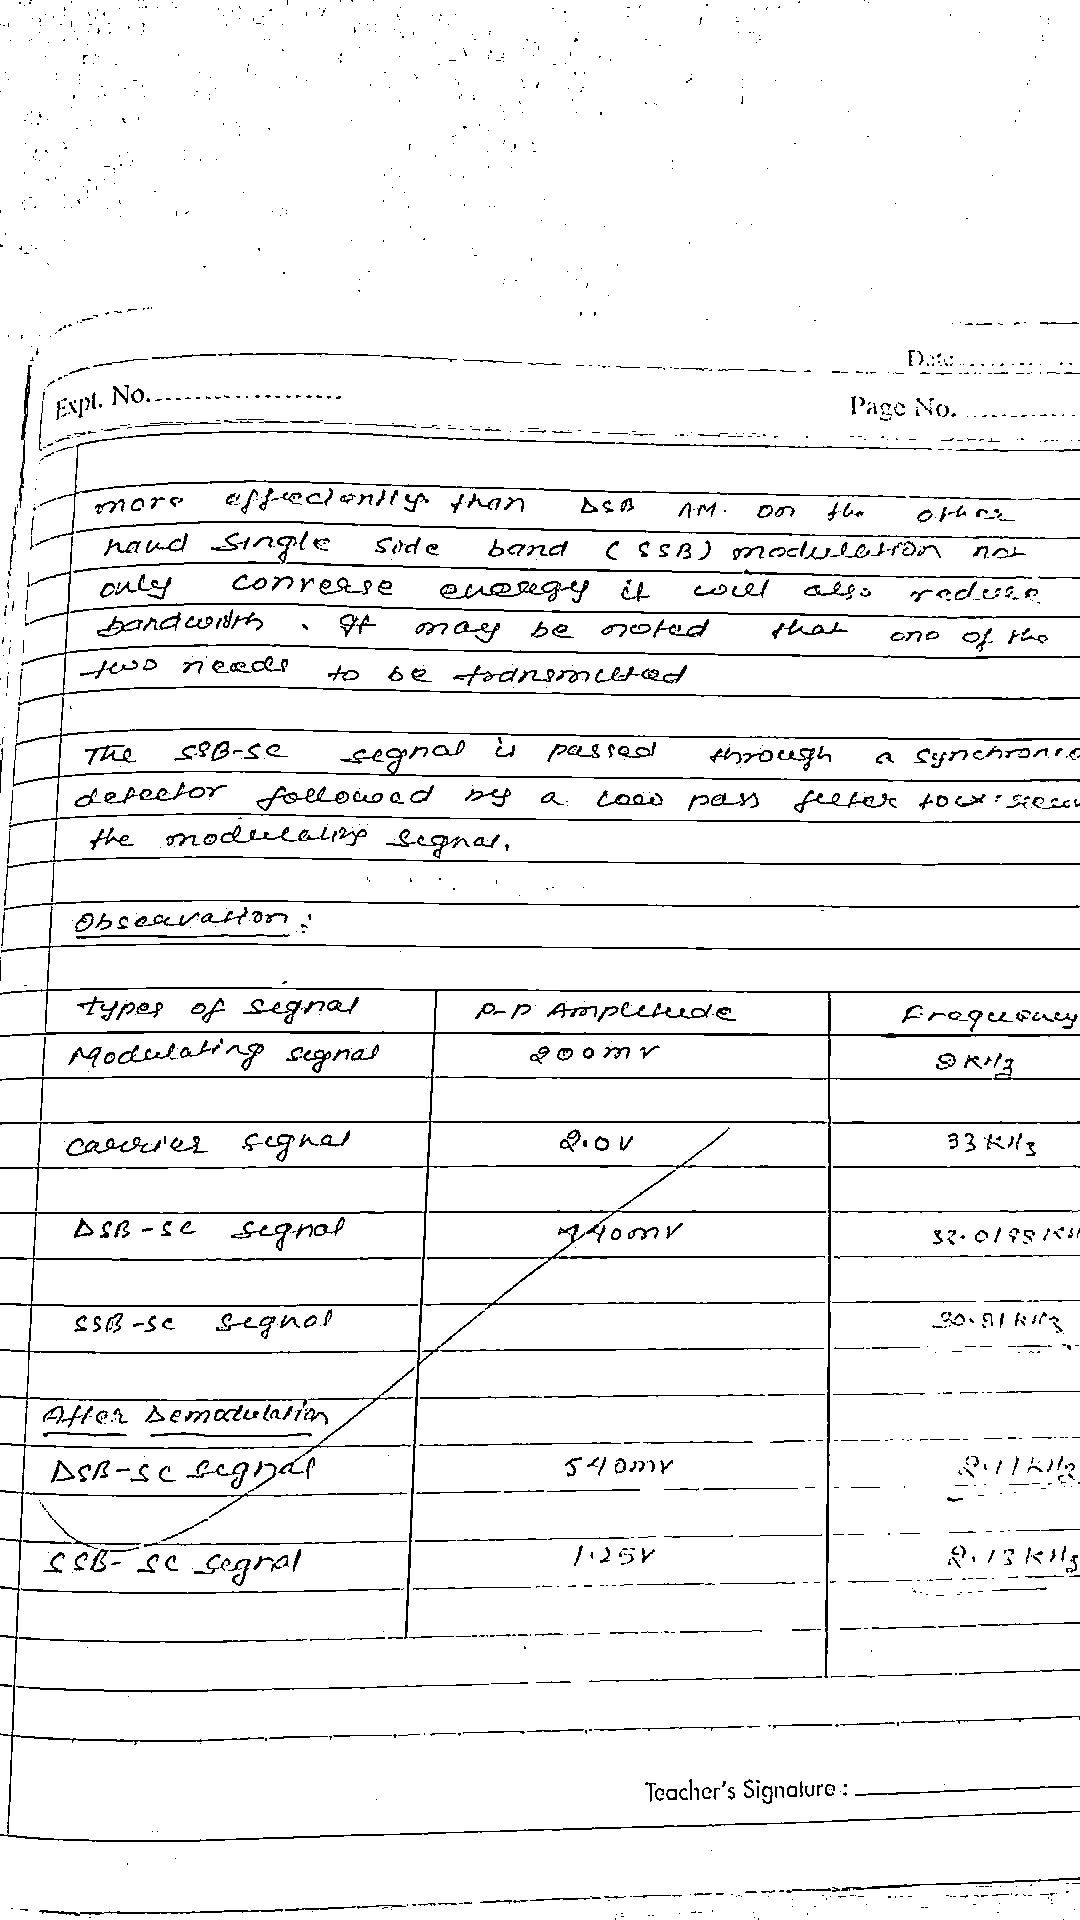 Date
Expt. No.
Page No.
more effeciently than DSB AM. on the other
hand single side band (SSB) modulation not
only converse energy it will also reduse
bandwidth. It may be noted that one of the
two needs to be transmitted
The SSB-SC segnal is passed through a synchrono
detector followed by a low pass filter to
the modulating segnal.
Observation:
Types of segnal P-P Amplitude Frequency
Modulating segnal 200mV KHz
Carrier segnal 2.0V 33 KHz
DSB-SC segnal 440mV
SSB-SC segnal 30.81 KHz
After Demodulation
DSB-SC segnal 540mV 2.11 KHz
SSB-SC segnal 1.25V 2.13 KHz
Teacher's Signature :